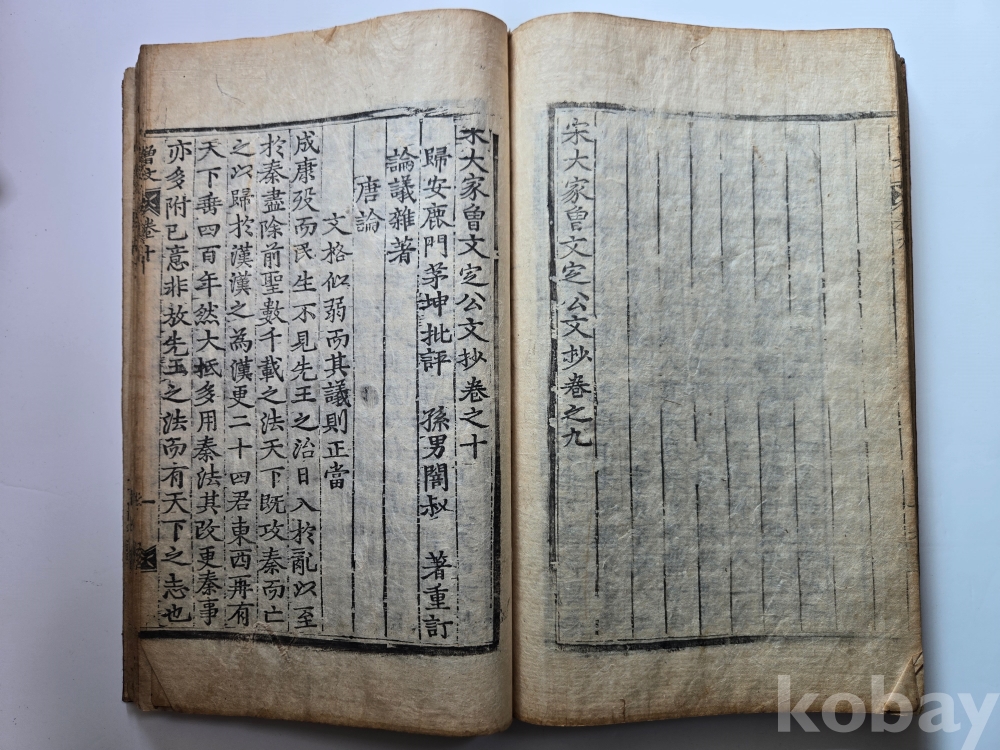 宋大家曾文定公文抄卷之九
宋大家曾文定公文抄卷之十
歸安鹿門茅坤批評 孫男闇叔 著重訂
論議雜著
唐論
文格似弱而其議則正當
成康歿而民生不見先王之治日入於亂以至
於秦盡除前聖數千載之法天下既攻秦而亡
之以歸於漢漢之為漢更二十四君東西再有
天下垂四百年然大抵多用秦法其改更秦事
亦多附已意非放先王之法而有天下之志也
曾文 卷十 一
kobay